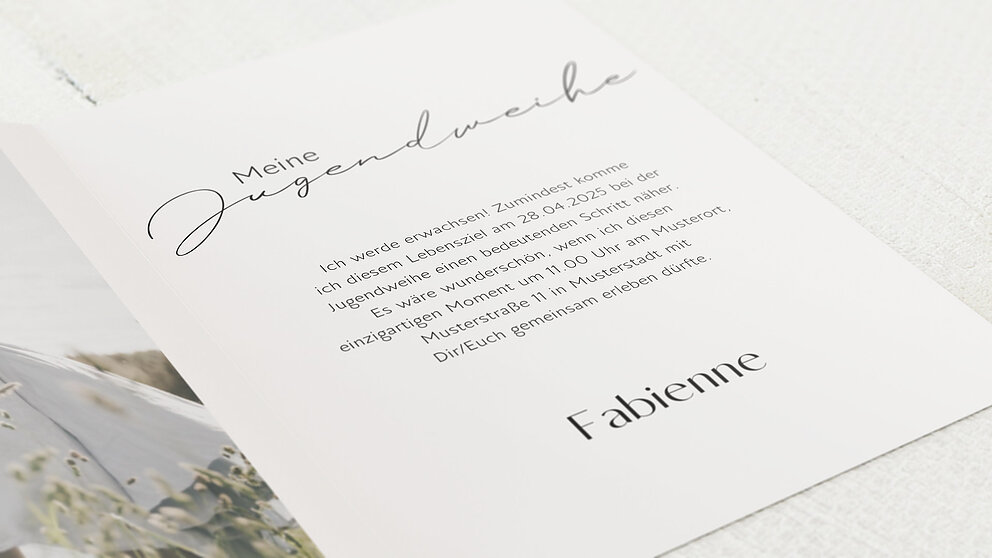 Meine
Jugendweihe
Ich werde erwachsen! Zumindest komme
ich diesem Lebensziel am 28.04.2025 bei der
Jugendweihe einen bedeutenden Schritt näher.
Es wäre wunderschön, wenn ich diesen
einzigartigen Moment um 11.00 Uhr am Musterort,
Musterstraße 11 in Musterstadt mit
Dir/Euch gemeinsam erleben dürfte.
Fabienne